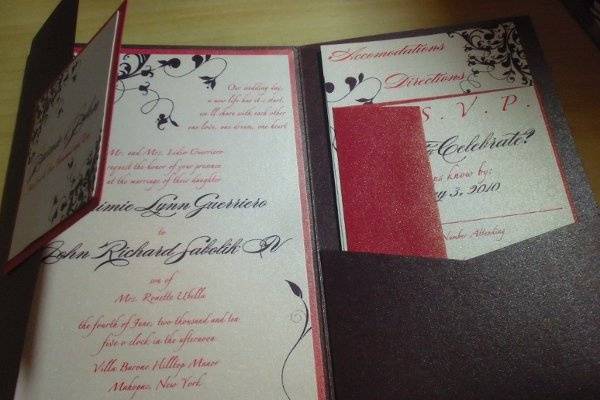 Our wedding day,
a new life has it's start,
we'll share with each other
one love, one dream, one heart
Mr. and Mrs. Guerriero
request the honor of your presence
at the marriage of their daughter
Lynn Guerriero
to
John Richard Sabolik IV
son of
Mrs. Ronette Ubella
the fourth of June, two thousand and ten
five o'clock in the afternoon
Villa Barone Hilltop Manor
Mahopac, New York
Accomodations
Directions
S. V. P.
Celebrate?
know by:
3, 2010
Number Attending